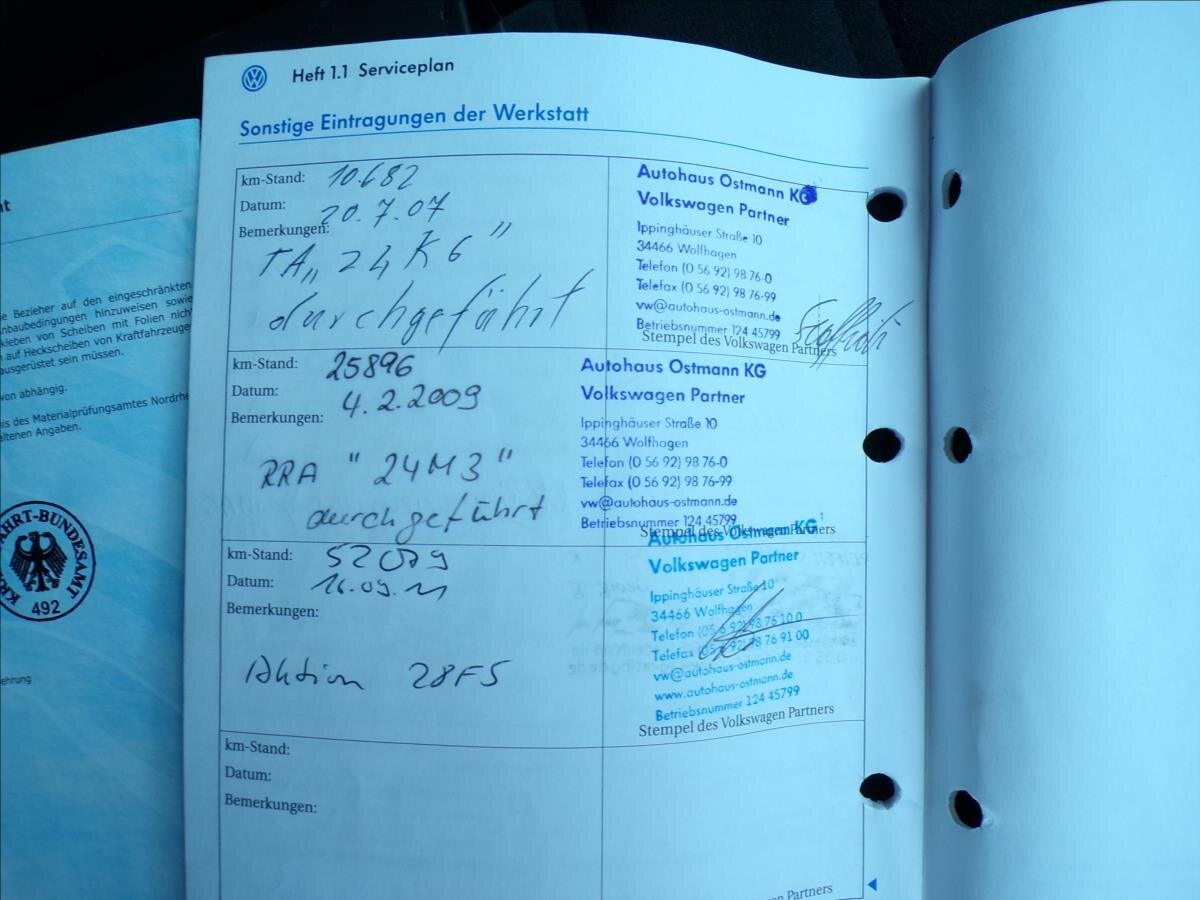 Heft 1.1 Serviceplan
Sonstige Eintragungen der Werkstatt
km-Stand: 10.682
Datum: 20.7.07
Bemerkungen:
TA „24K6"
durchgeführt
Autohaus Ostmann KG
Volkswagen Partner
Ippinghäuser Straße 10
34466 Wolfhagen
Telefon (0 56 92) 98 76-0
Telefax (0 56 92) 98 76-99
vw@autohaus-ostmann.de
Betriebsnummer 124 45799
Stempel des Volkswagen Partners
km-Stand: 25896
Datum: 4.2.2009
Bemerkungen:
RRA "24M3"
durchgeführt
Autohaus Ostmann KG
Volkswagen Partner
Ippinghäuser Straße 10
34466 Wolfhagen
Telefon (0 56 92) 98 76-0
Telefax (0 56 92) 98 76-99
vw@autohaus-ostmann.de
Betriebsnummer 124 45799
Stempel des Volkswagen Partners
km-Stand: 52079
Datum: 16.09.11
Bemerkungen:
Aktion 28F5
Autohaus Ostmann KG
Volkswagen Partner
Ippinghäuser Straße 10
34466 Wolfhagen
Telefon (05 6 92) 98 76 10 0
Telefax (05 6 92) 98 76 91 00
vw@autohaus-ostmann.de
www.autohaus-ostmann.de
Betriebsnummer 124 45799
Stempel des Volkswagen Partners
km-Stand:
Datum:
Bemerkungen:
Partners
Bezieher auf den eingeschränkten
nbaubedingungen hinzuweisen sowie
kleben von Scheiben mit Folien nich
auf Heckscheiben von Kraftfahrzeuge
ausgerüstet sein müssen.
von abhängig.
nis des Materialprüfungsamtes Nordrhe
altenen Angaben.
AHRT-BUNDESAMT
492
ehrung